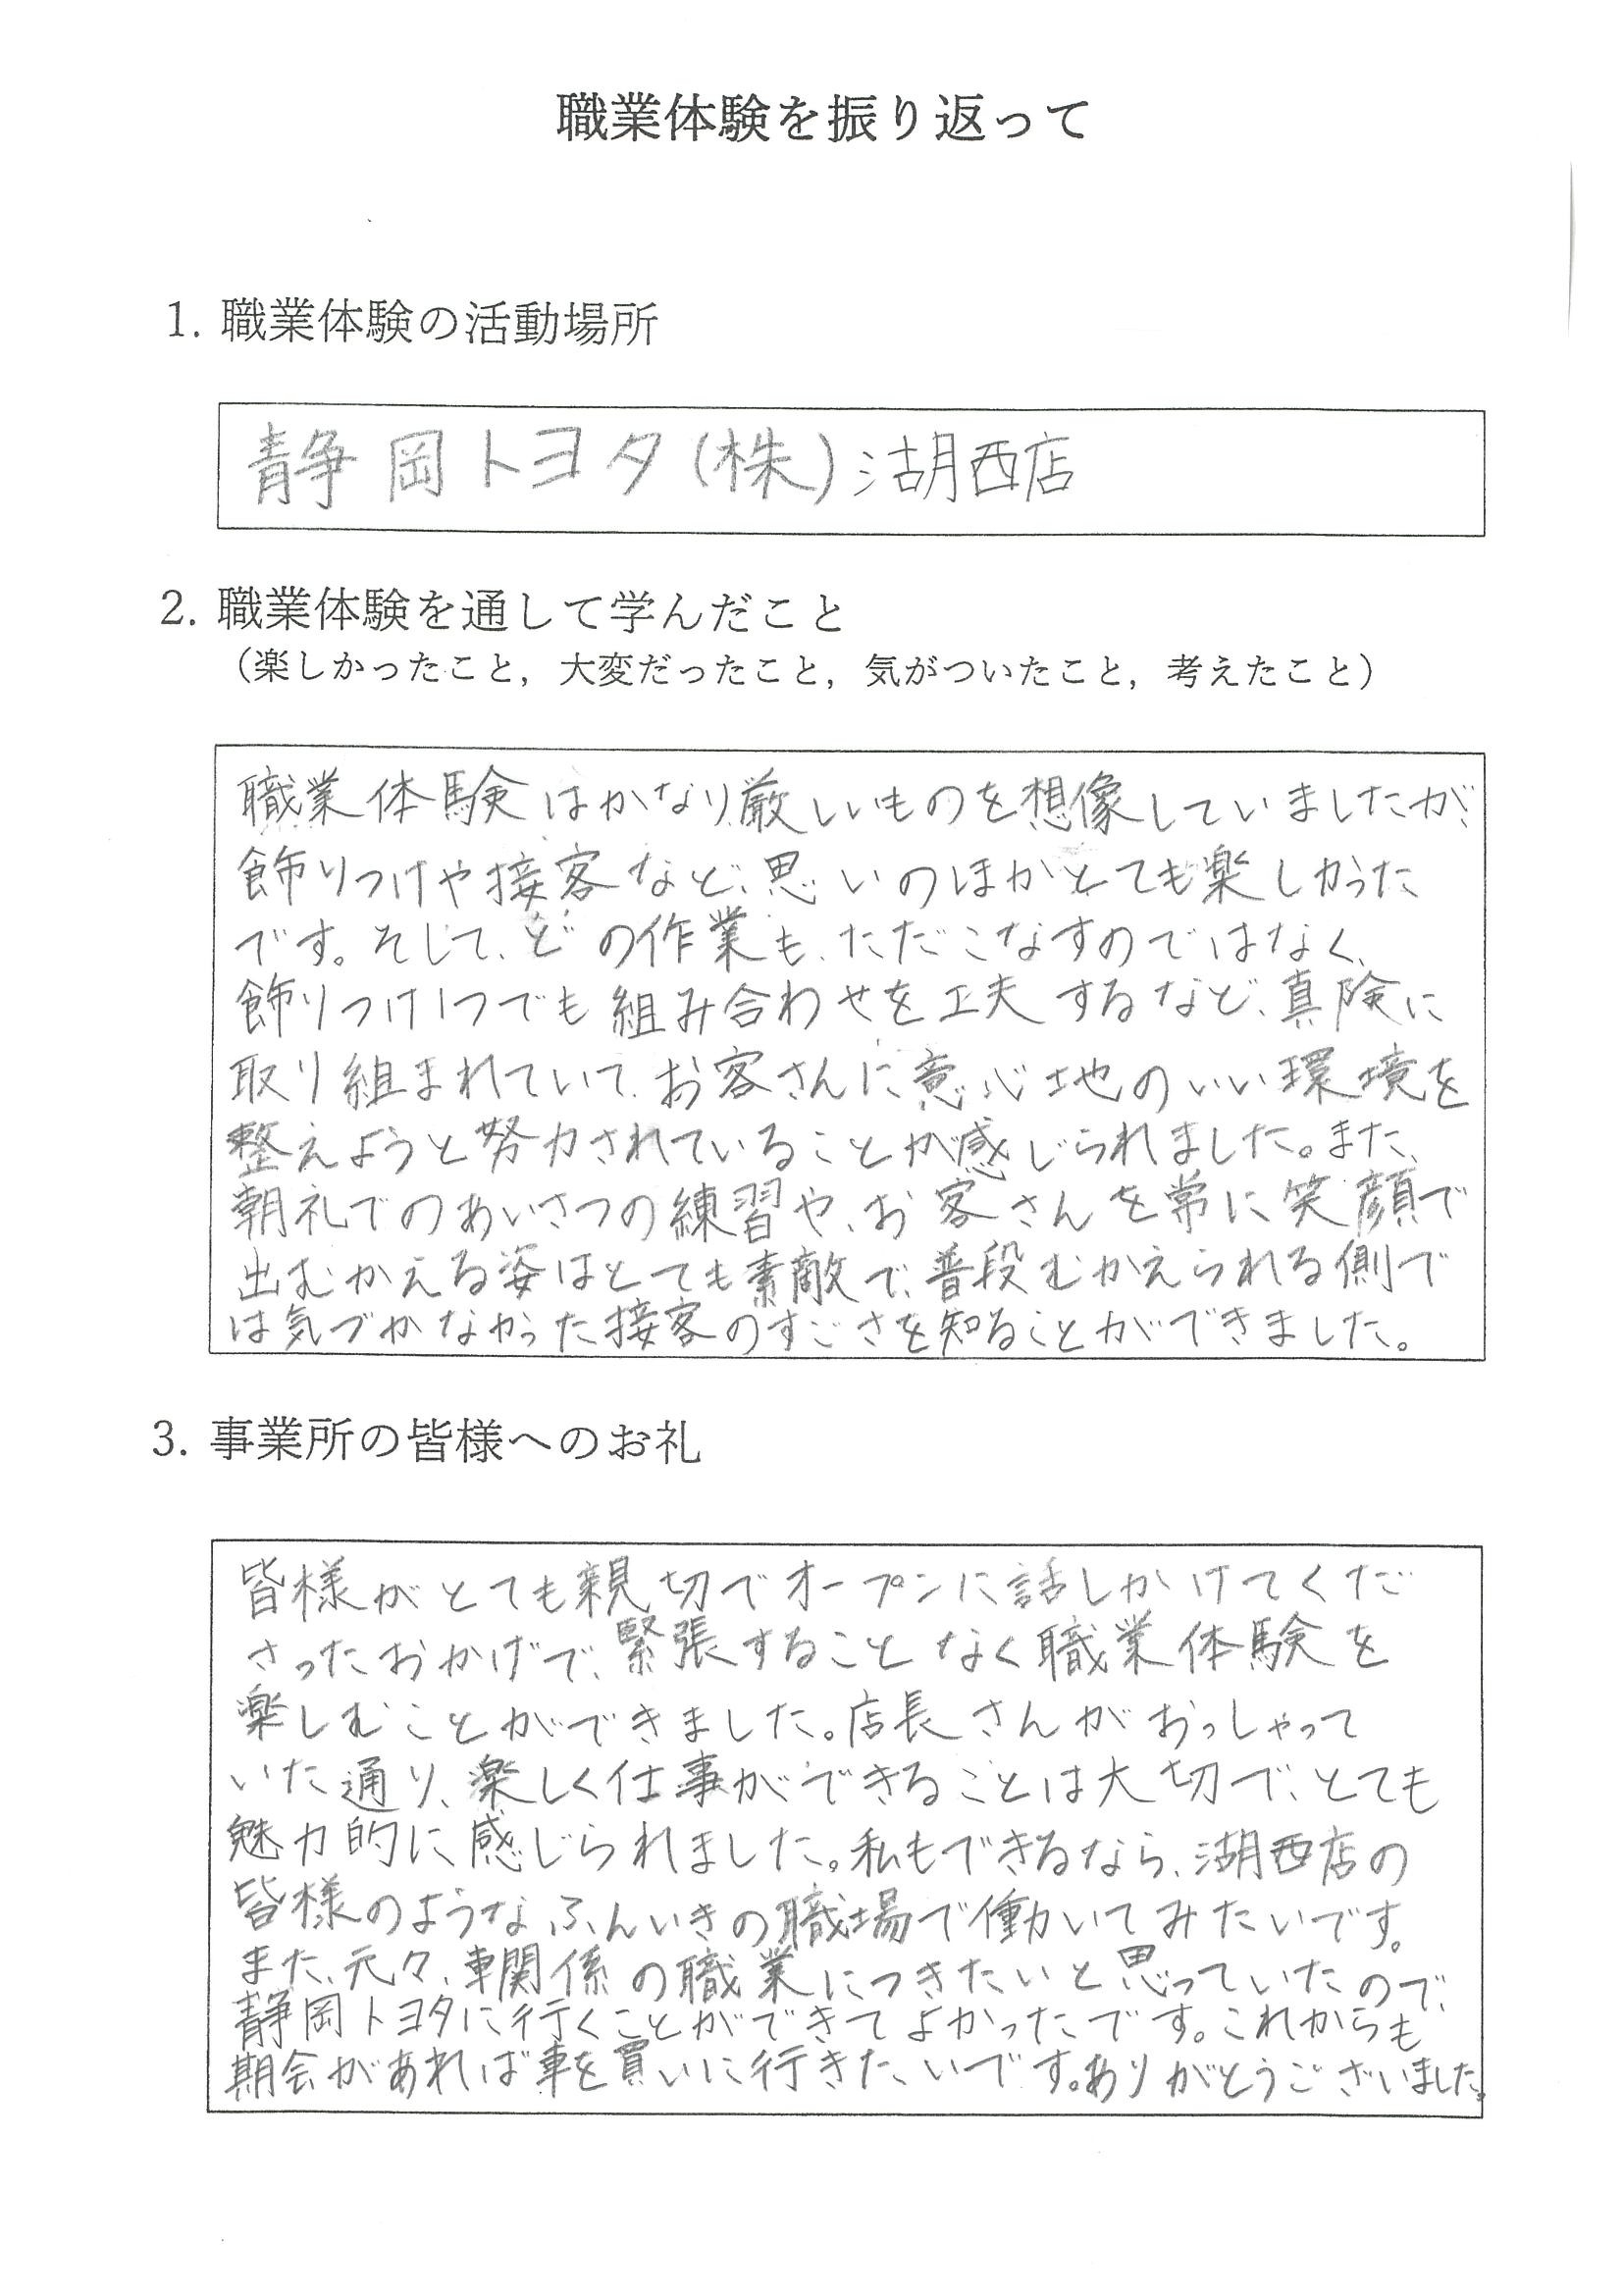 職業体験を振り返って
1. 職業体験の活動場所
静岡トヨタ(株)湖西店
2. 職業体験を通して学んだこと
（楽しかったこと，大変だったこと，気がついたこと，考えたこと）
職業体験はかなり厳しいものを想像していましたが、
飾りつけや接客など、思いのほかとても楽しかった
です。そして、どの作業も、ただこなすのではなく、
飾りつけ1つでも組み合わせを工夫するなど、真険に
取り組まれていて、お客さんに意心地のいい環境を
整えようと努力されていることが感じられました。また、
朝礼でのあいさつの練習や、お客さんを常に笑顔で
出むかえる姿はとても素敵で、普段むかえられる側で
は気づかなかった接客のすごさを知ることができました。
3. 事業所の皆様へのお礼
皆様がとても親切でオープンに話しかけてくだ
さったおかげで、緊張することなく職業体験を
楽しむことができました。店長さんがおっしゃって
いた通り、楽しく仕事ができることは大切で、とても
魅力的に感じられました。私もできるなら、湖西店の
皆様のようなふんいきの職場で働いてみたいです。
また、元々、車関係の職業につきたいと思っていたので、
静岡トヨタに行くことができてよかったです。これからも
期会があれば車を買いに行きたいです。ありがとうございました。